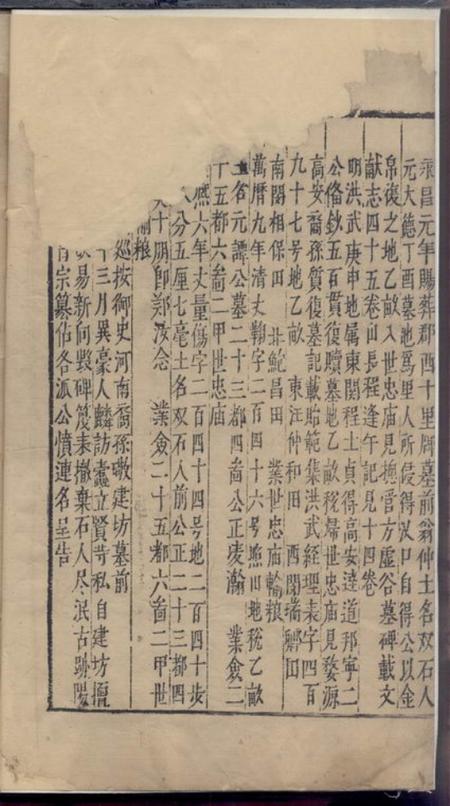 永昌元年賜葬郡西十里牌墓前翁仲土名双石人
元大德丁酉墓地為里人所侵得汊口自得公以金
帛復之地乙畝入世忠庙見撫官方虛谷墓碑載文
献志四十五卷山長程逢午記見十四卷
明洪武庚申地属東関程士貞得高安達道邦寧二
公俻鈔五百貫復贖墓地乙畝税歸世忠庙見婺源
高安裔孫質復墓記載貽範集洪武経理表字四百
九十七号地乙畝 東汪仲和田 西閔瑞卿田
南閔相保田 北鮑昌田 業世忠庙輪粮
萬厯九年清丈翱字二百四十六号㷖山地税乙畝
土名元譚公墓二十三都四啚公正凌瀚 業僉二
十五都六啚二甲世忠庙
熙六年丈量傷字二百四十四号地二百四十步
八分五厘七毫土名双石人前公正二十三都四
十朋即鄭汝念 業僉二十五都六啚二甲世
輪粮
巡按御史河南裔孫㻞建坊墓前
十三月異豪人麟訪蠹立賢䓁私自建坊擅
易新向毁碑篼耒撤棄石人尽泯古跡陽
宗纂佔各派公憤連名呈告